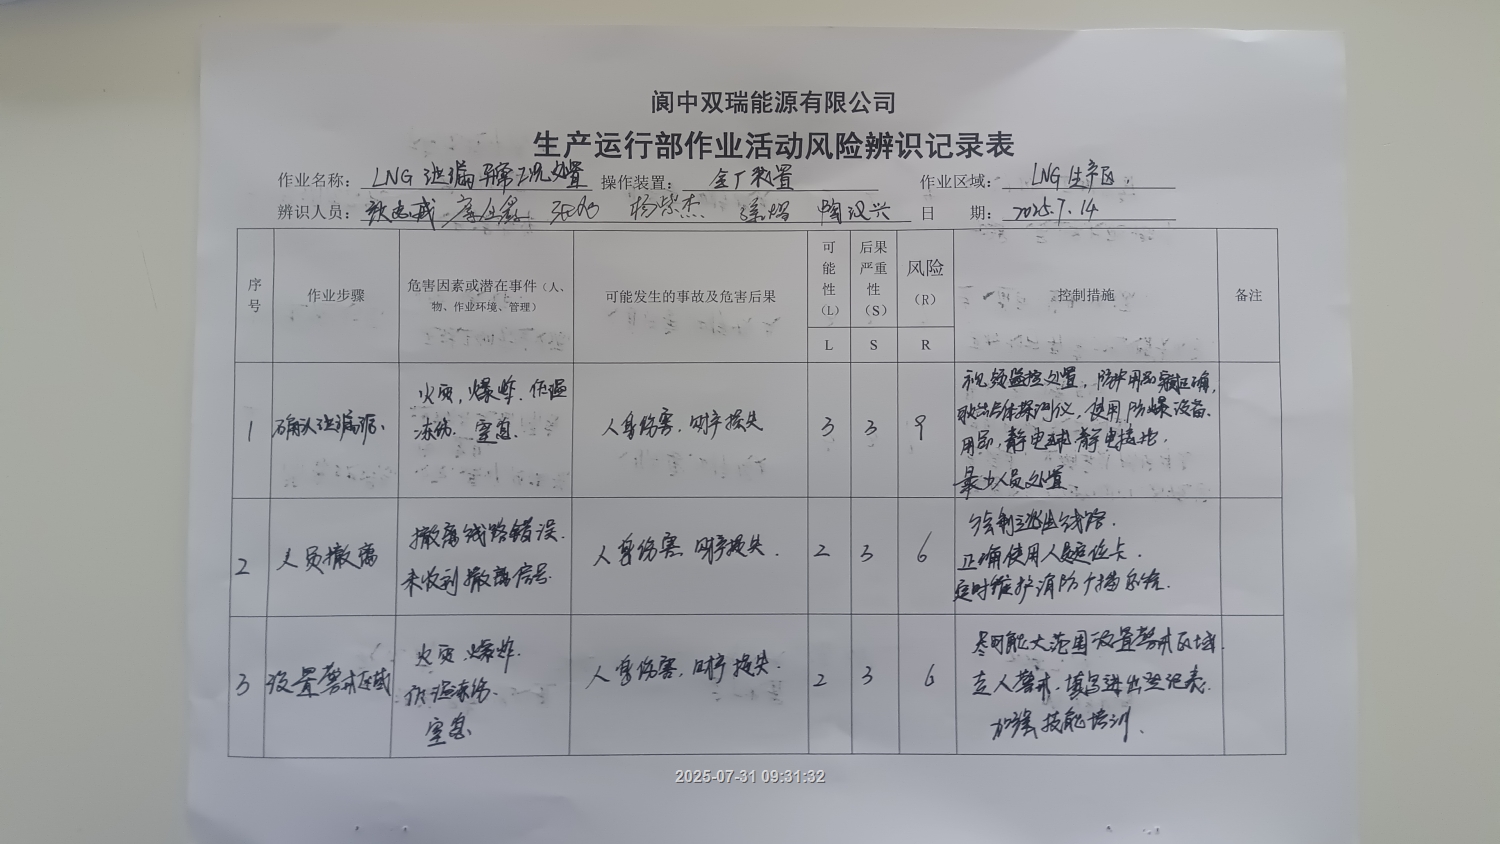 阆中双瑞能源有限公司
生产运行部作业活动风险辨识记录表
作业名称: LNG泄漏异常工况处置 操作装置: 全厂装置 作业区域: LNG生产区
辨识人员: 杨紫杰 陶汉兴 日 期: 2025.7.14
序号 作业步骤 危害因素或潜在事件(人、物、作业环境、管理) 可能发生的事故及危害后果 可能性(L) 后果严重性(S) 风险(R) 控制措施 备注
L S R
1 确认泄漏源、 火灾,爆炸.低温 人身伤害.财产损失 3 3 9 视频监控处置,防护用品穿戴正确,
冻伤.窒息. 气体探测仪,使用防爆设备、
用品,静电球静电接地,
最少人员处置.
2 人员撤离 撤离线路错误. 人身伤害.财产损失. 2 3 6 绘制逃生线路.
未收到撤离信号. 正确使用人员定位卡.
定时维护消防广播系统.
3 设置警戒区域 火灾.爆炸. 人身伤害,财产损失. 2 3 6 尽可能大范围设置警戒区域.
低温冻伤. 专人警戒.填写进出登记表.
窒息. 加强技能培训、
2025-07-31 09:31:32